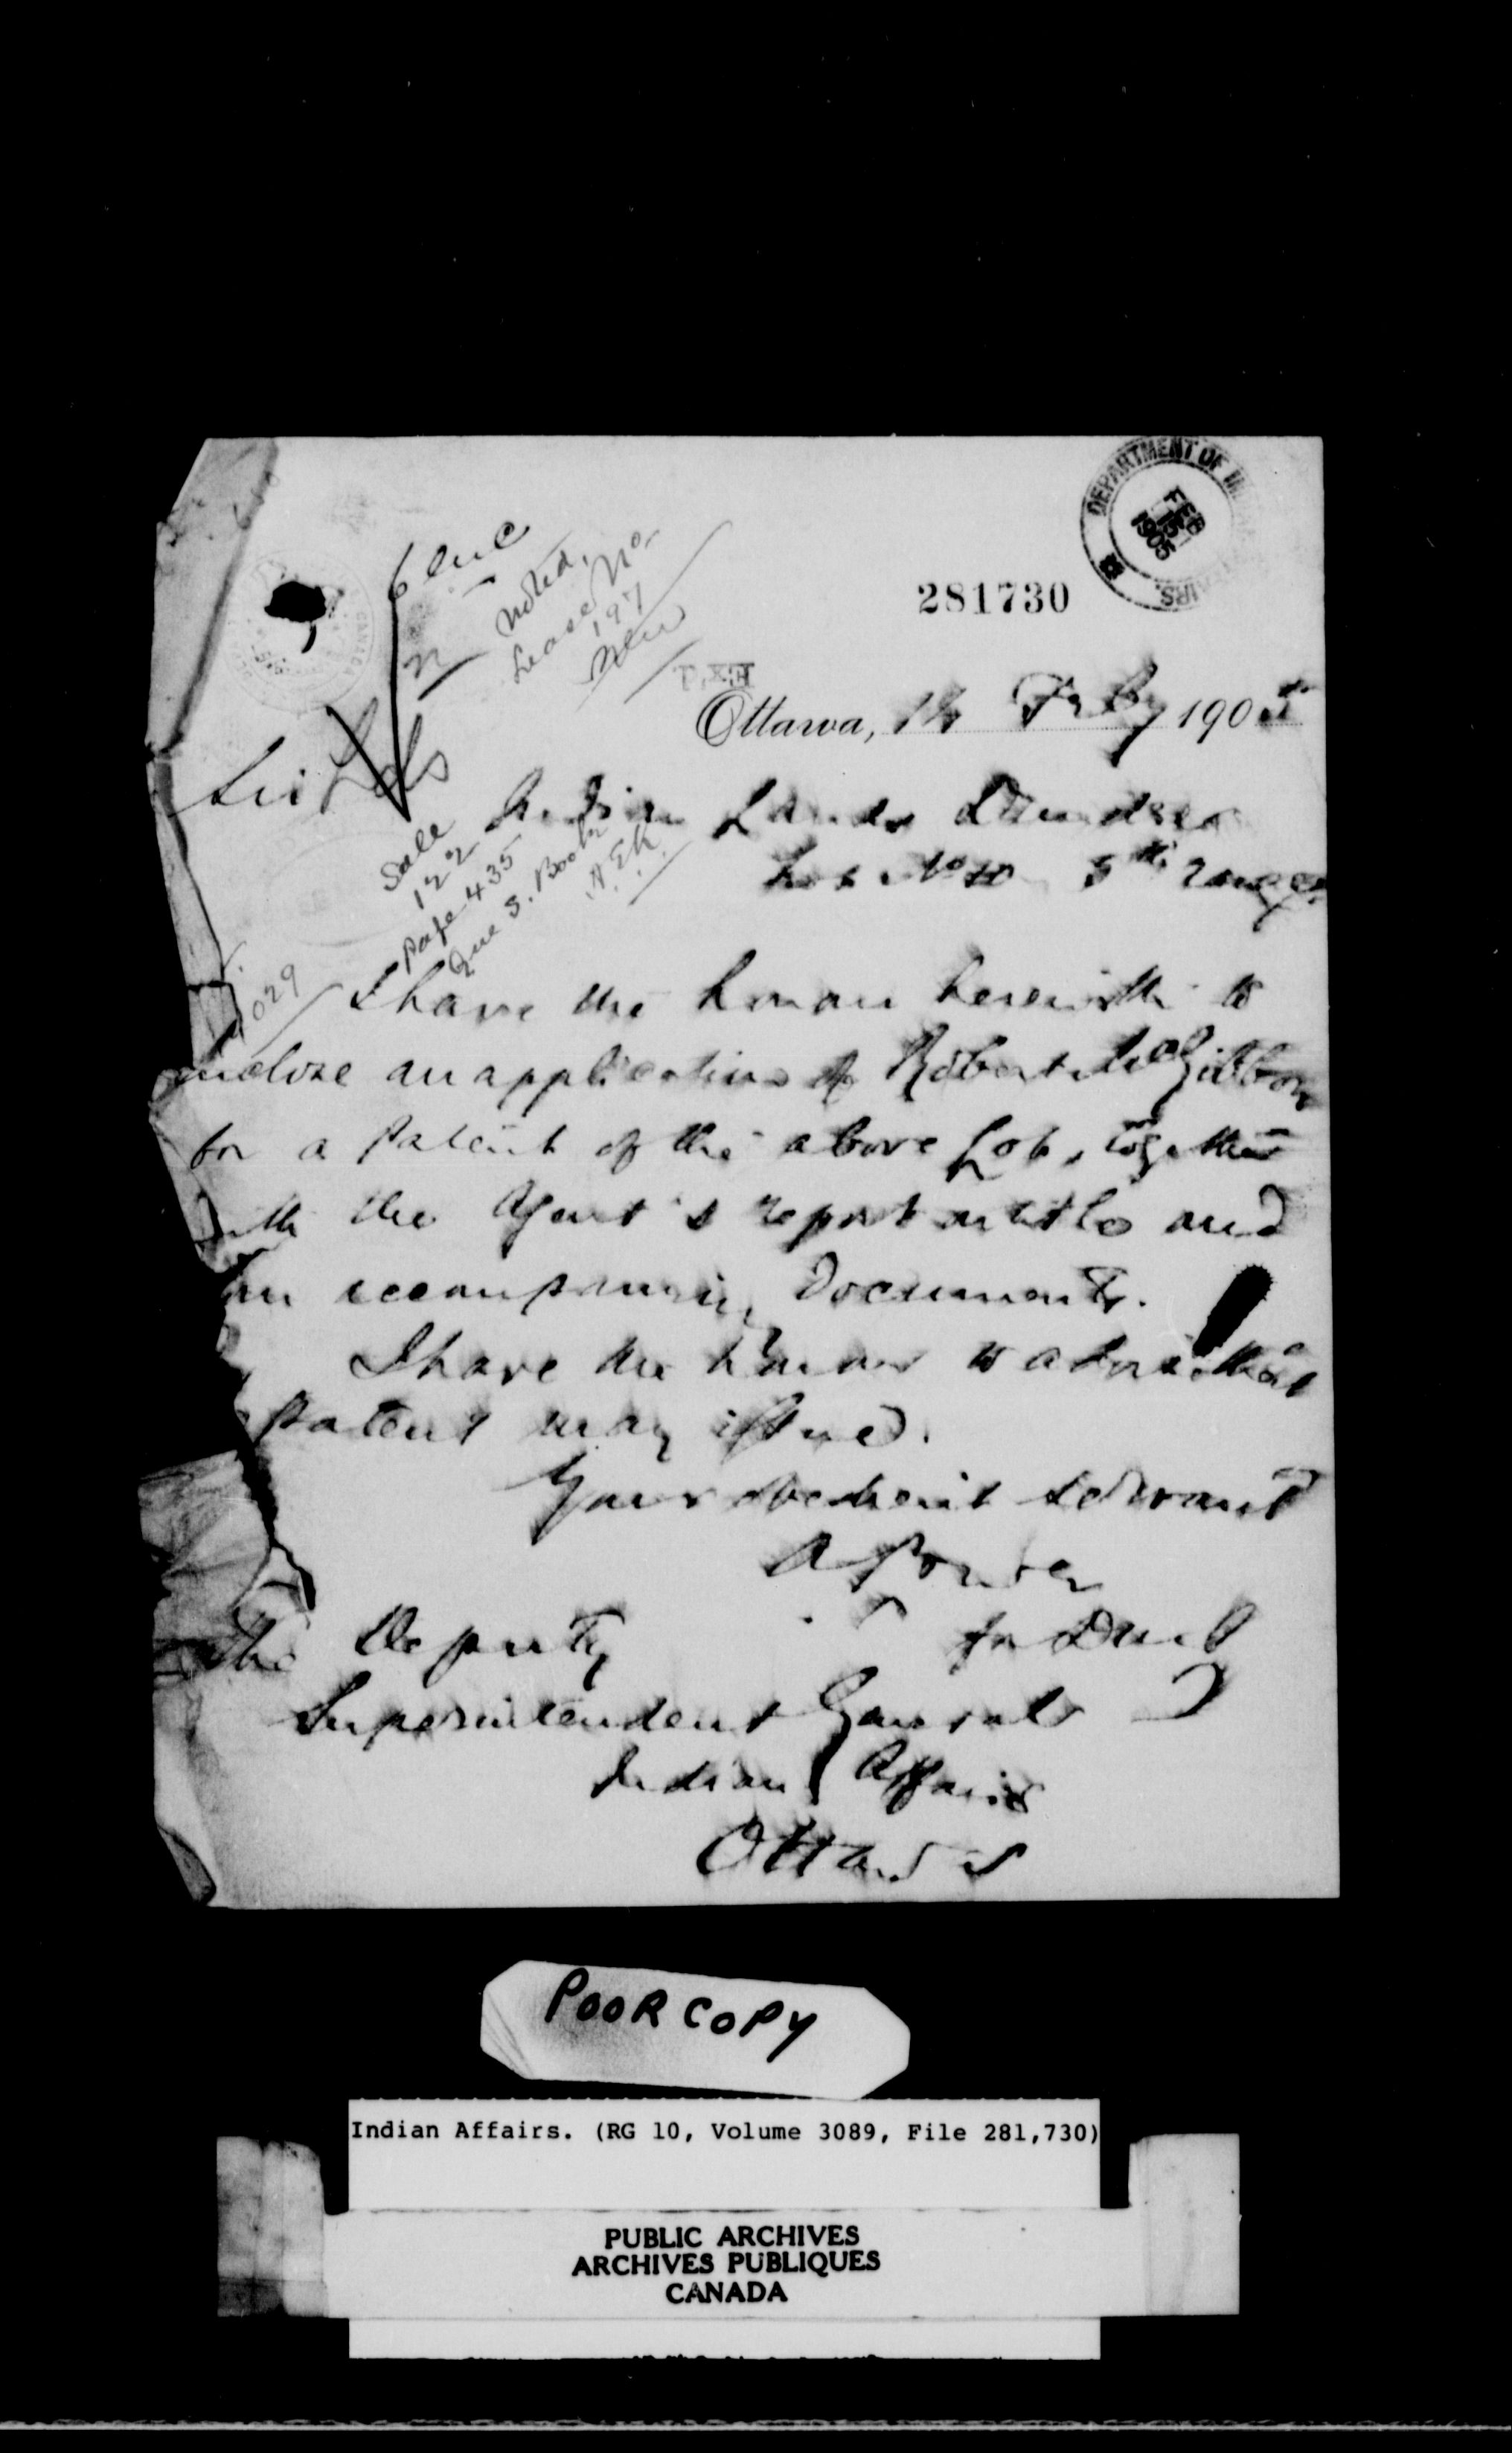 DEPARTMENT OF
FEB 15 1905
6 enc
Noted,
Lease No
197
New
281730
Ottawa, 14 Feby 1905
Sale
122
Page 435
Que S. Book
A.E.K.
Indian Lands Dundee
Lot No 10 5th range
029
I have the honour herewith to
inclose an application of Robert McGibbon
for a patent of the above Lot, together
with the Agent's report on title and
accompanying Documents.
I have the honour to advise that
patent may issue.
Your obedient servant
A Power
for DMJ
The Deputy
Superintendent General
Indian Affairs
Ottawa
POOR COPY
Indian Affairs. (RG 10, Volume 3089, File 281,730)
PUBLIC ARCHIVES
ARCHIVES PUBLIQUES
CANADA